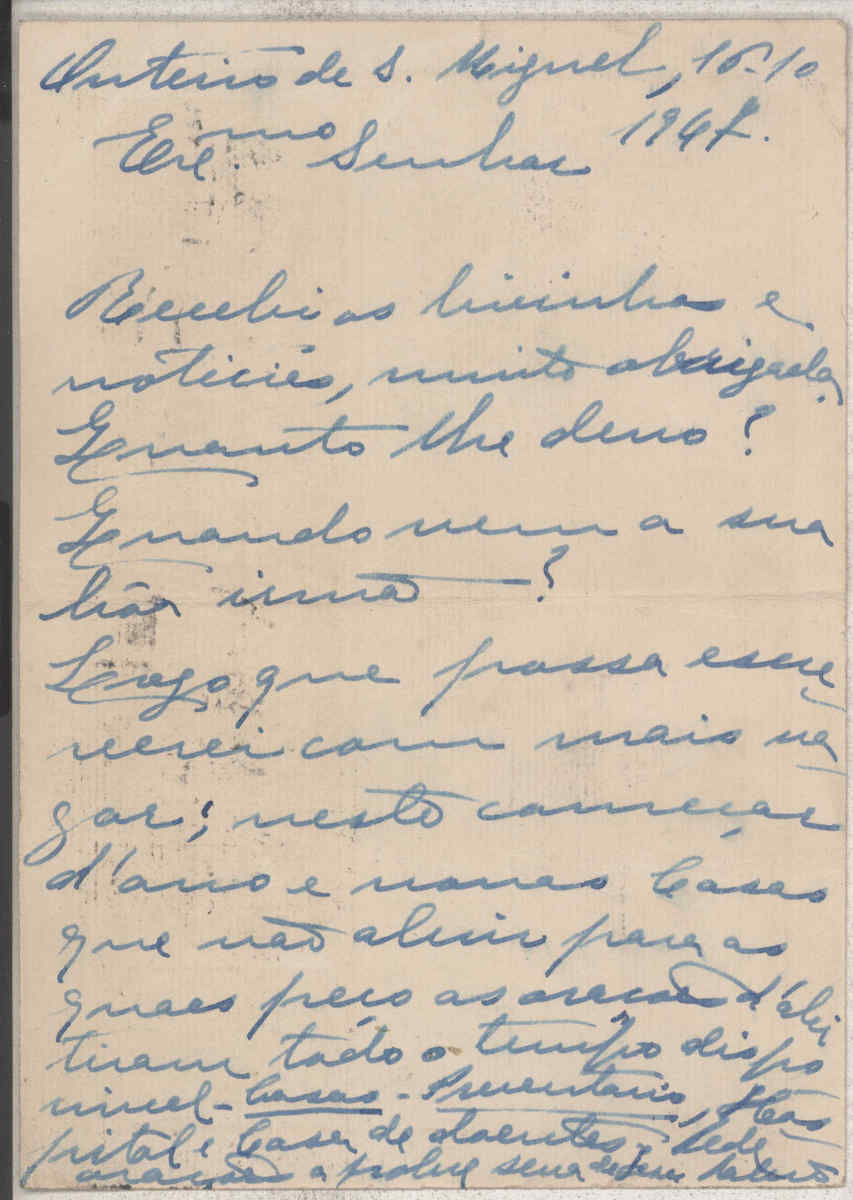 Outeiro de S. Miguel, 16-10
1947.
Exc.mo Senhor
Recebi os livrinhos e
noticiés, muito obrigada.
Quanto lhe devo?
Quando vem a sua
bôa irmã?
Logo que possa escre
verei com mais va
gar; nesto começar
d'ano e novas Casas
que vão abrir para as
quaes peço as orações d'ahi
tiram todo o tempo dispo
nivel - Casas - Preventorio, Hos
pital e Casa de doentes. Pede
orações a pobre serva de Deus